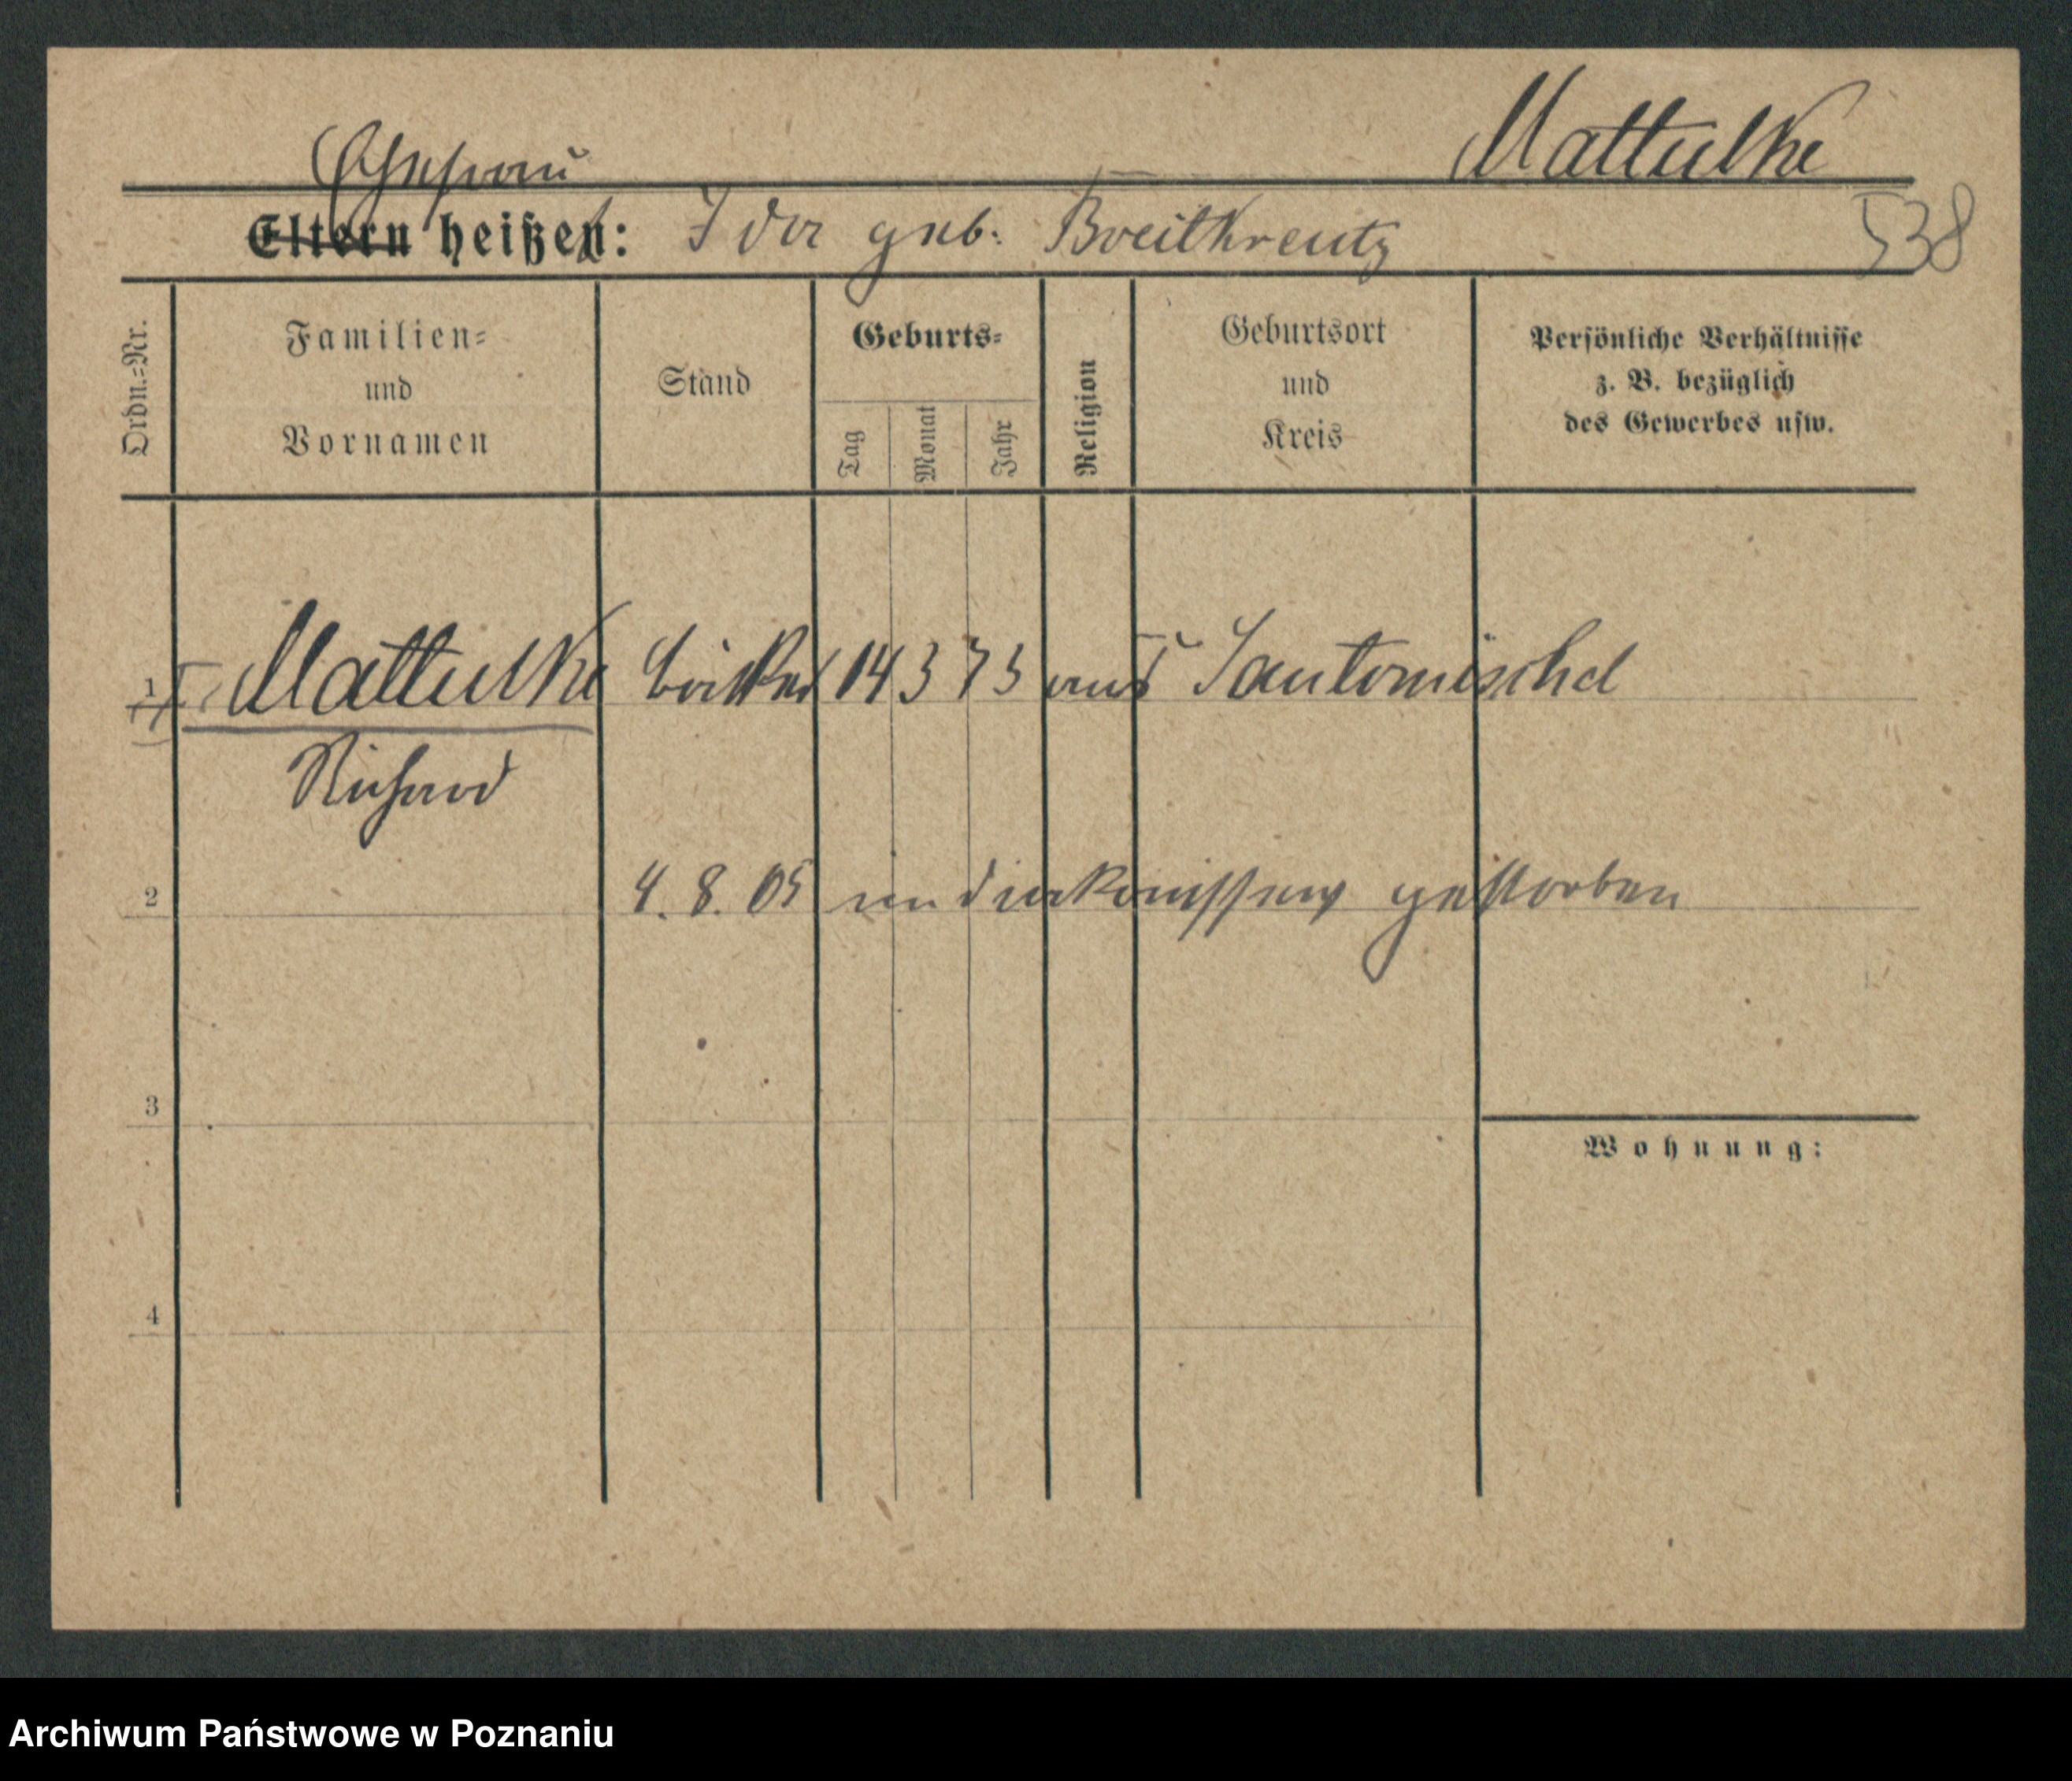 Mattulke
Ehefrau
Eltern heißen: Ida geb. Breitkreutz 538
Ordn.-Nr.
Familien-
und
Vornamen
Stand
Geburts-
Tag
Monat
Jahr
Religion
Geburtsort
und
Kreis
Persönliche Verhältnisse
z. B. bezüglich
des Gewerbes usw.
1 Mattulke 14 3 73 aus Santomischel
Richard
2 4. 8. 05 im gestorben
3
Wohnung:
4
Archiwum Państwowe w Poznaniu